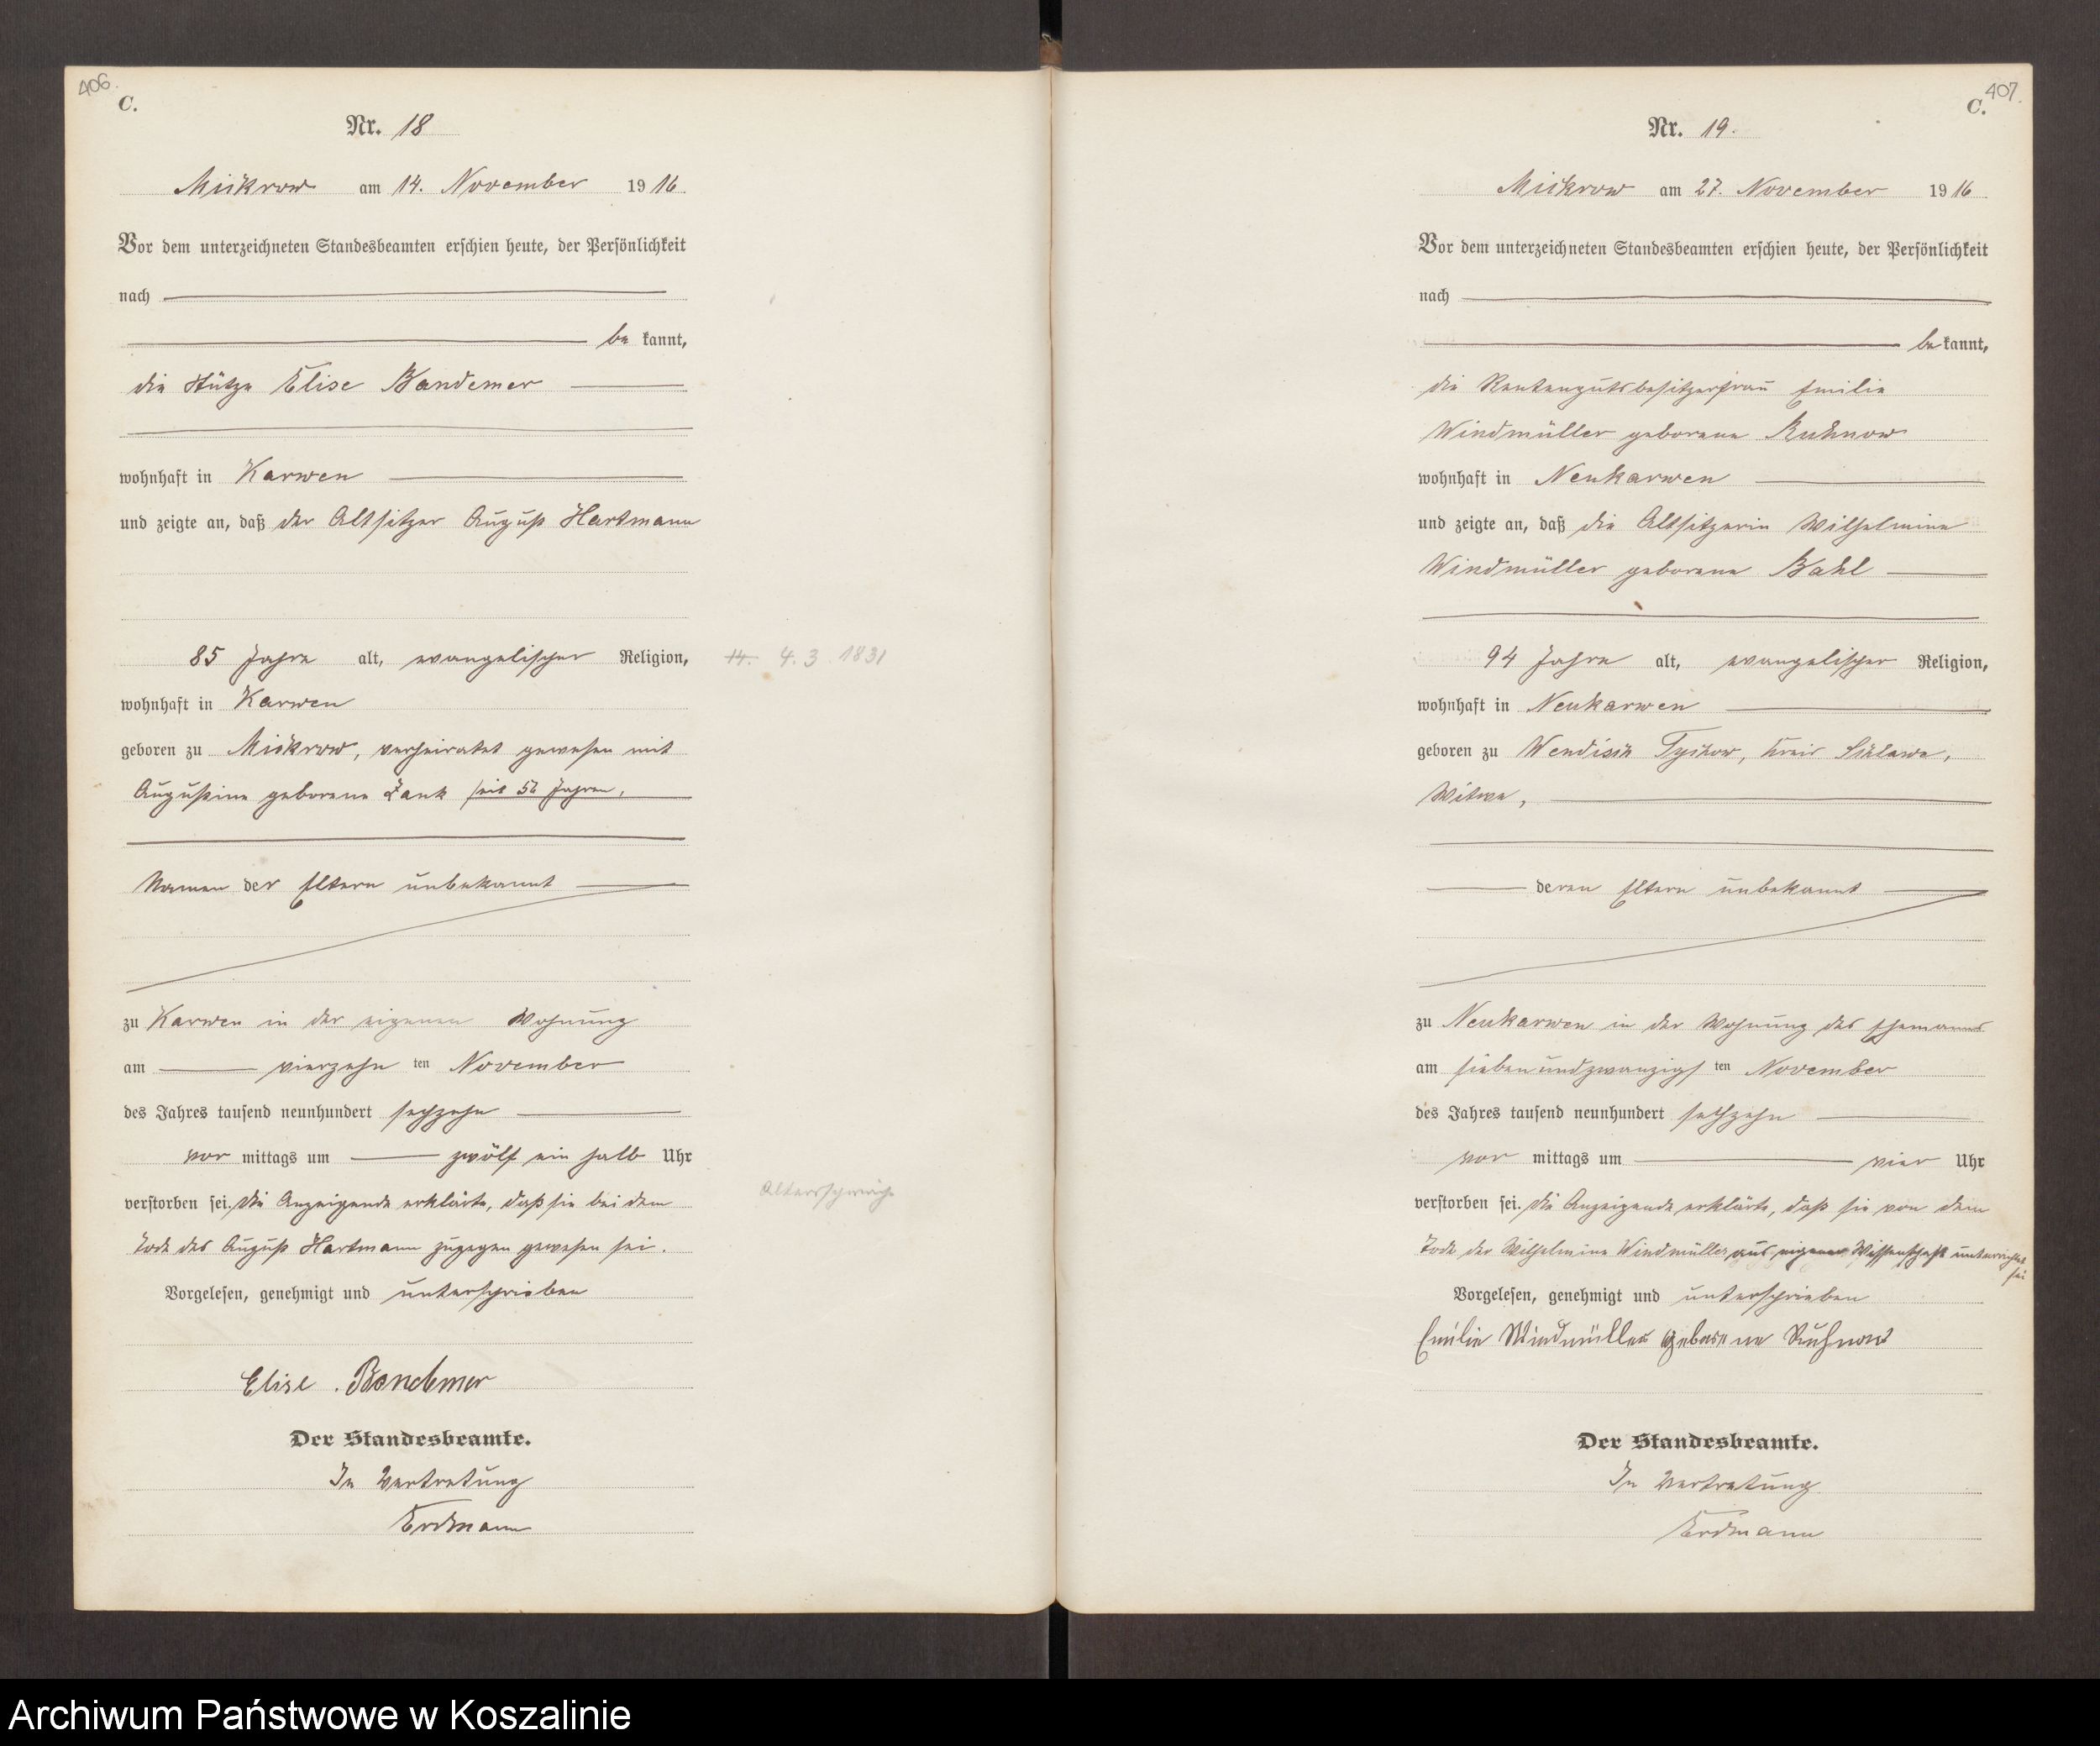 406.
C.
Nr. 18
Mickrow am 14. November 1916
Vor dem unterzeichneten Standesbeamten erschien heute, der Persönlichkeit
nach
be kannt,
die Stütze Elise Bandemer
wohnhaft in Karwen
und zeigte an, daß der Altsitzer August Hartmann
85 Jahre alt, evangelischer Religion,
14. 4. 3. 1831
wohnhaft in Karwen
geboren zu Mickrow, verheiratet gewesen mit
Augustine geborene Zank seit 52 Jahren,
Namen der Eltern unbekannt
zu Karwen in der eigenen Wohnung
am vierzehn ten November
des Jahres tausend neunhundert sechzehn
vor mittags um zwölf ein halb Uhr
verstorben sei. Die Anzeigende erklärte, daß sie bei dem
Altersschwäche
Tode des August Hartmann zugegen gewesen sei.
Vorgelesen, genehmigt und unterschrieben
Elise Bandemer
Der Standesbeamte.
In Vertretung
Erdmann
407.
C.
Nr. 19.
Mickrow am 27. November 1916
Vor dem unterzeichneten Standesbeamten erschien heute, der Persönlichkeit
nach
be kannt,
die Rentengutsbesitzerfrau Emilie
Windmüller geborene Ruhnow
wohnhaft in Neukarwen
und zeigte an, daß die Altsitzerin Wilhelmine
Windmüller geborene Bahl
94 Jahre alt, evangelischer Religion,
wohnhaft in Neukarwen
geboren zu Wendisch Tychow, Kreis Schlawe,
Witwe,
deren Eltern unbekannt
zu Neukarwen in der Wohnung des Ehemanns
am siebenundzwanzigs ten November
des Jahres tausend neunhundert sechzehn
vor mittags um vier Uhr
verstorben sei. Die Anzeigende erklärte, daß sie von dem
Tode der Wilhelmine Windmüller aus eigener Wissenschaft unterrichtet
sei
Vorgelesen, genehmigt und unterschrieben
Emilie Windmüller geborene Ruhnow
Der Standesbeamte.
In Vertretung
Erdmann
Archiwum Państwowe w Koszalinie